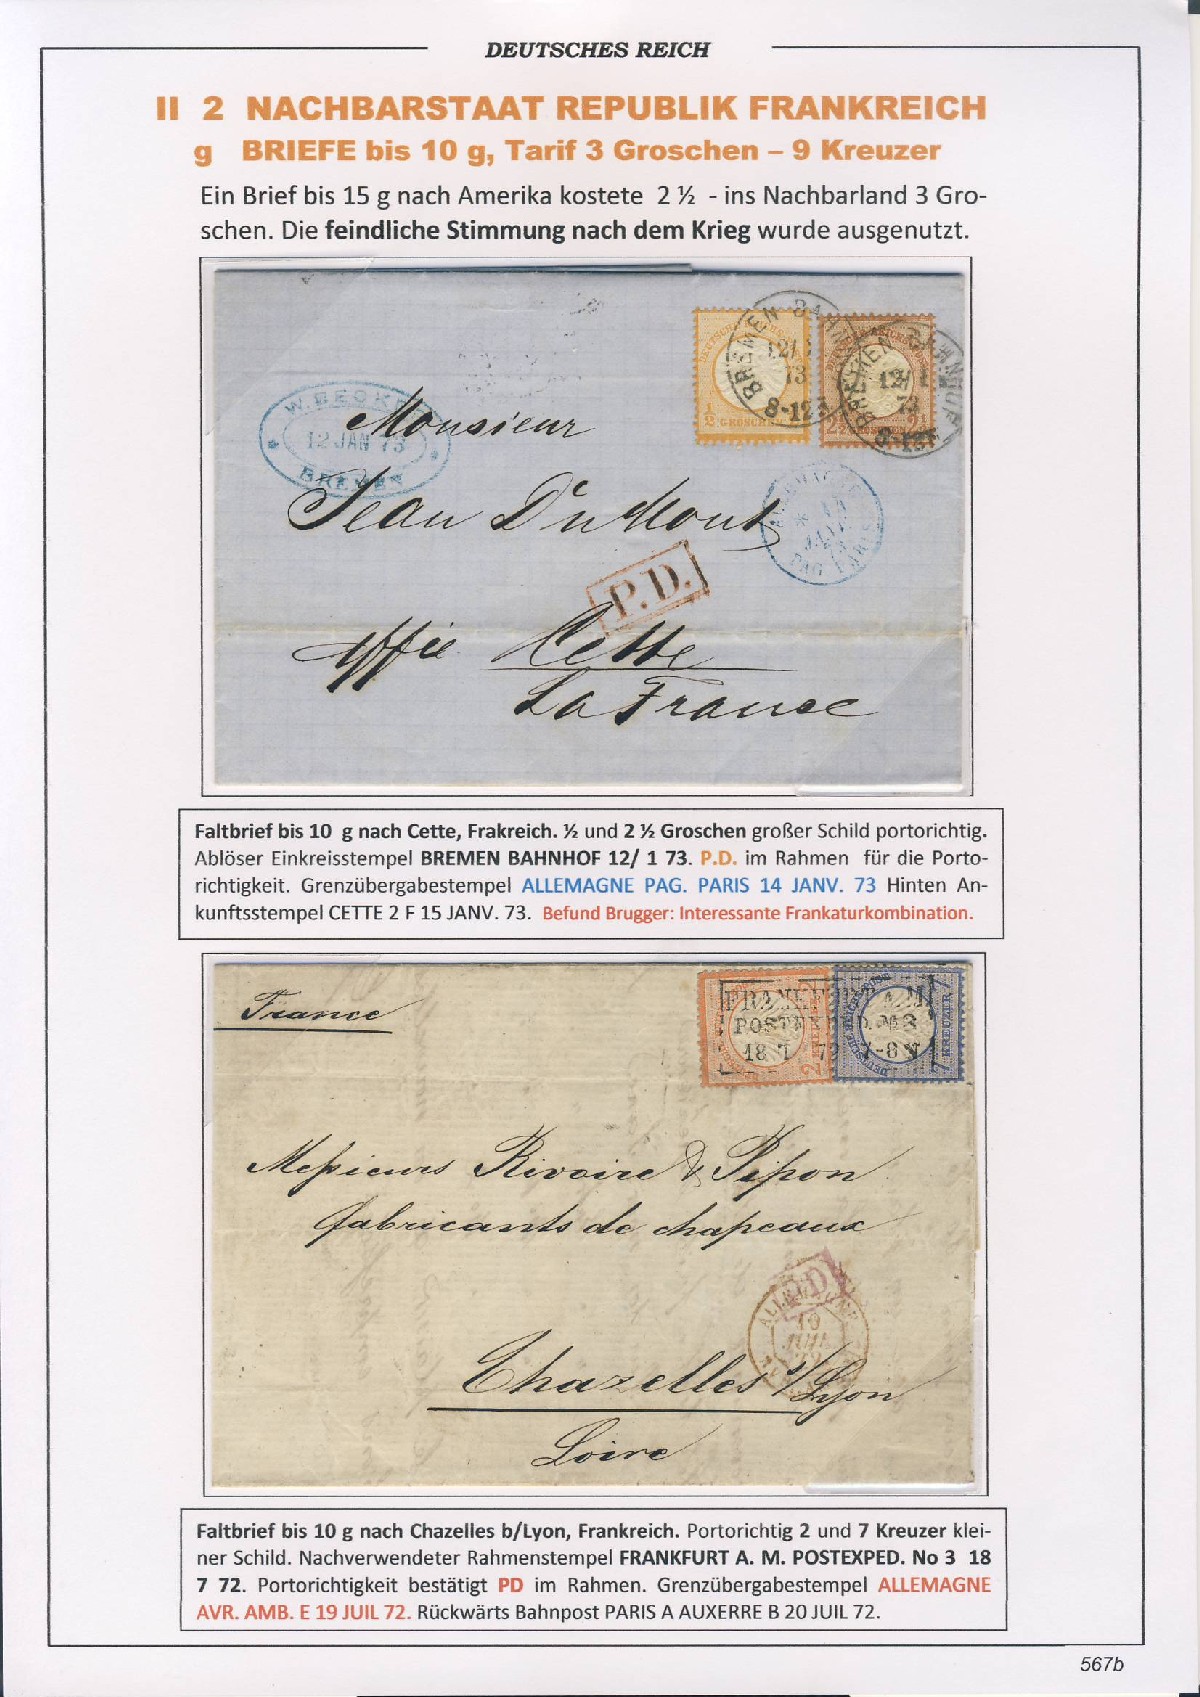 DEUTSCHES REICH
II 2 NACHBARSTAAT REPUBLIK FRANKREICH
g BRIEFE bis 10 g, Tarif 3 Groschen – 9 Kreuzer
Ein Brief bis 15 g nach Amerika kostete 2 ½ - ins Nachbarland 3 Gro-
schen. Die feindliche Stimmung nach dem Krieg wurde ausgenutzt.
BREMEN BAHN
12/1
73
8-12
½ GROSCHEN
BREMEN BAHNHOF
12/1
73
8-12
W. BECKE
12 JAN 73
BREMEN
Monsieur
Jean DuMont
PAG PARIS
P.D.
Cette
La France
Faltbrief bis 10 g nach Cette, Frakreich. ½ und 2 ½ Groschen großer Schild portorichtig.
Ablöser Einkreisstempel BREMEN BAHNHOF 12/ 1 73. P.D. im Rahmen für die Porto-
richtigkeit. Grenzübergabestempel ALLEMAGNE PAG. PARIS 14 JANV. 73 Hinten An-
kunftsstempel CETTE 2 F 15 JANV. 73. Befund Brugger: Interessante Frankaturkombination.
France
FRANKFURT A. M.
POSTEXPED. No 3
18 7 72 7-8 N
7 KREUZER 7
Messieurs Rivoire & Pipon
fabricants de chapeaux
PD
19
JUIL
72
Chazelles s/Lyon
Loire
Faltbrief bis 10 g nach Chazelles b/Lyon, Frankreich. Portorichtig 2 und 7 Kreuzer klei-
ner Schild. Nachverwendeter Rahmenstempel FRANKFURT A. M. POSTEXPED. No 3 18
7 72. Portorichtigkeit bestätigt PD im Rahmen. Grenzübergabestempel ALLEMAGNE
AVR. AMB. E 19 JUIL 72. Rückwärts Bahnpost PARIS A AUXERRE B 20 JUIL 72.
567b